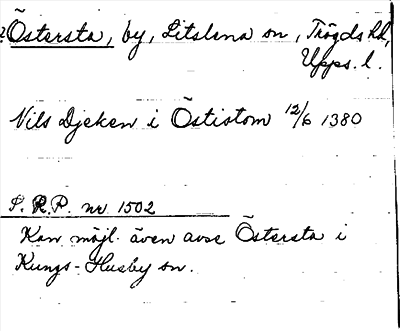 ? Östersta, by, Litslena sn, Trögds hd,
Upps. l.
Nils Djeken i Östistom 12/6 1380
S.R.P. nr 1502
Kan möjl. även avse Östersta i
Kungs-Husby sn.